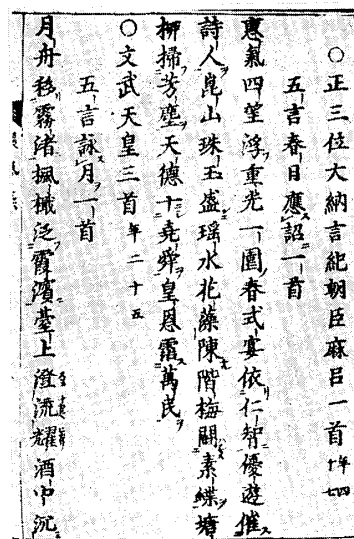 ○正三位大納言紀朝臣麻呂一首 年四十七
五言春日應詔一首
惠氣四望浮重光一園春式宴依仁智優遊催
詩人崑山珠玉盛瑶水花藻陳階梅闘素蝶塘
柳掃芳塵天德十堯舜皇恩霑萬民
○文武天皇三首 年二十五
五言詠月一首
月舟移霧渚楓檝泛霞濱臺上澄流耀酒中沉